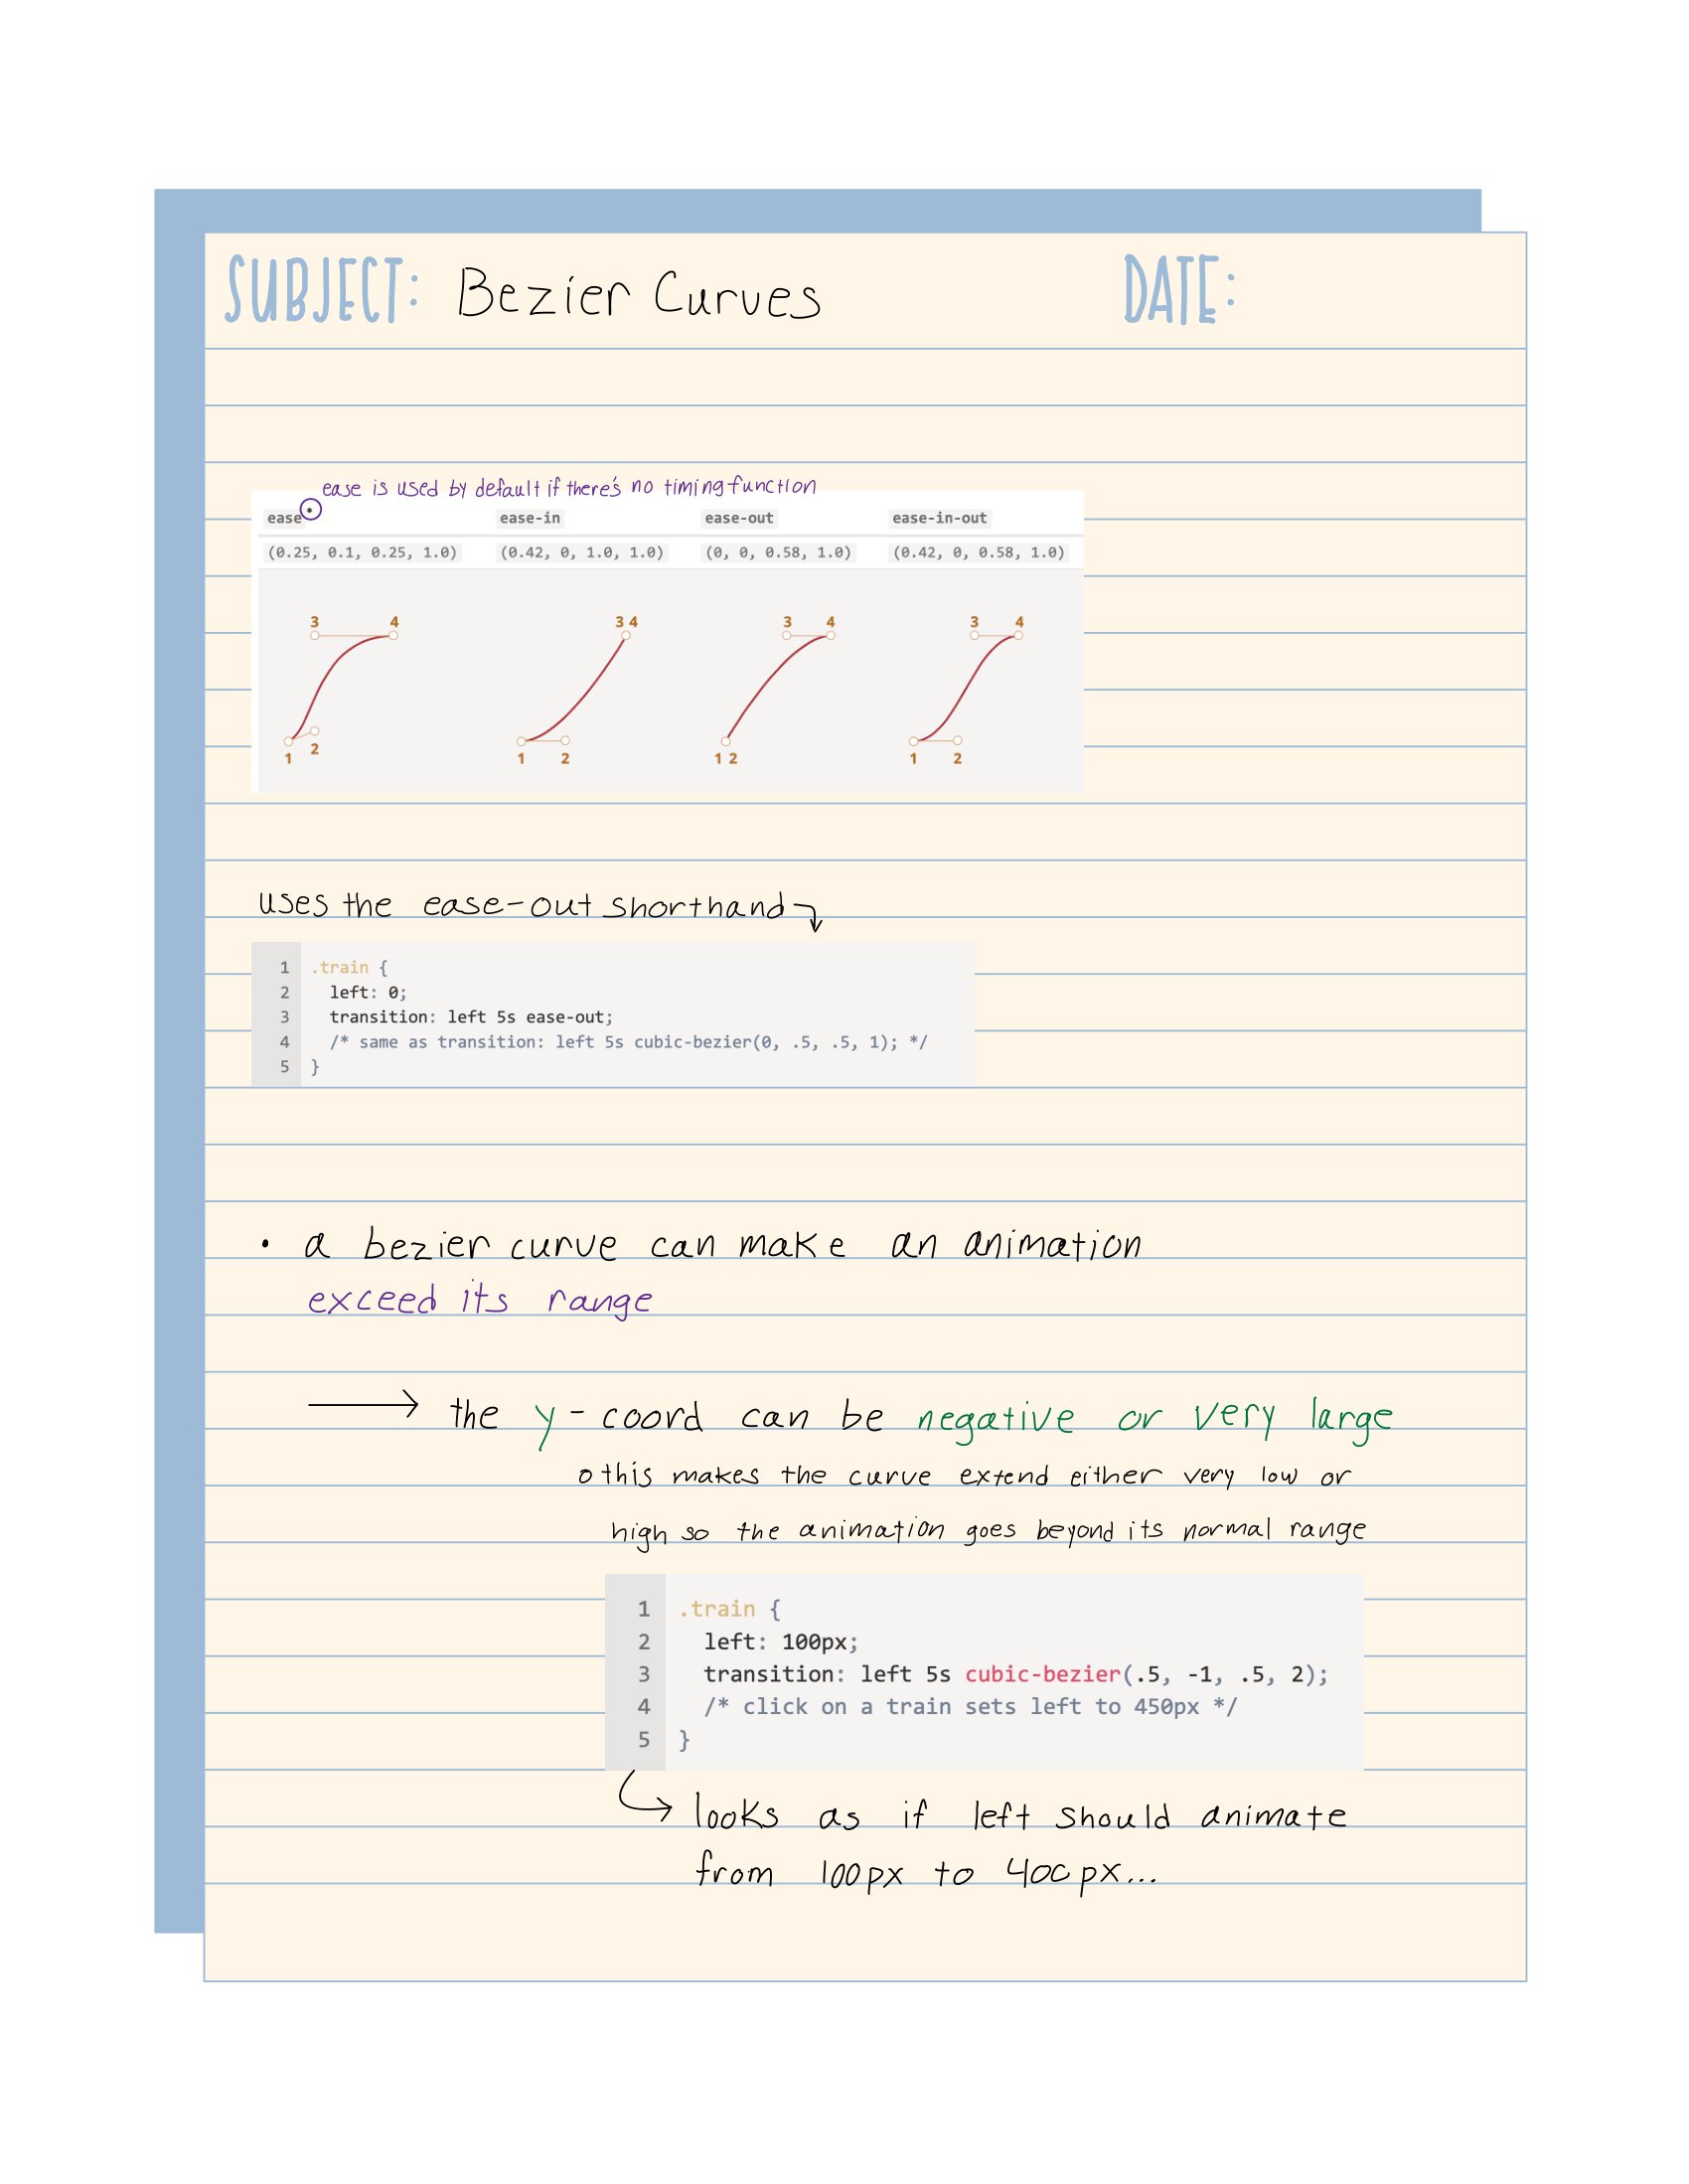 SUBJECT: Bezier Curves DATE:
ease is used by default if there's no timing function
ease ease-in ease-out ease-in-out
(0.25, 0.1, 0.25, 1.0) (0.42, 0, 1.0, 1.0) (0, 0, 0.58, 1.0) (0.42, 0, 0.58, 1.0)
3 4 3 4 3 4 3 4
1 2 1 2 1 2 1 2
uses the ease-out shorthand
1 .train {
2 left: 0;
3 transition: left 5s ease-out;
4 /* same as transition: left 5s cubic-bezier(0, .5, .5, 1); */
5 }
• a bezier curve can make an animation
exceed its range
→ the y-coord can be negative or very large
o this makes the curve extend either very low or
high so the animation goes beyond its normal range
1 .train {
2 left: 100px;
3 transition: left 5s cubic-bezier(.5, -1, .5, 2);
4 /* click on a train sets left to 450px */
5 }
looks as if left should animate
from 100px to 400px...